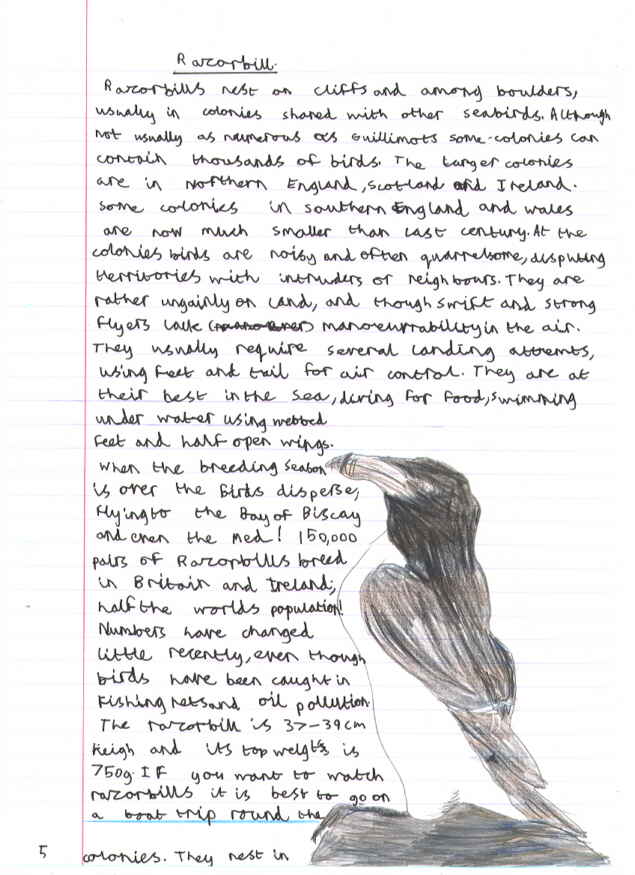 Razorbill.
Razorbills nest on cliffs and among boulders,
usually in colonies shared with other seabirds. Although
not usually as numerous as Guillimots some colonies can
contain thousands of birds. The larger colonies
are in Northern England, Scotland and Ireland.
Some colonies in southern England and wales
are now much smaller than last century. At the
colonies birds are noisy and often quarrelsome, disputing
territories with intruders or neighbours. They are
rather ungainly on land, and though swift and strong
flyers lack manoeurrability in the air.
They usually require several landing attemts,
using feet and tail for air control. They are at
their best in the sea, diving for food, swimming
under water using webbed
feet and half open wings.
When the breeding season
is over the Birds disperse,
flying to the Bay of Biscay
and even the Med! 150,000
pairs of Razorbills breed
in Britain and Ireland;
half the worlds population!
Numbers have changed
little recently, even though
birds have been caught in
fishing nets and oil pollution
The razorbill is 37-39cm
heigh and its top weights is
750g. If you want to watch
razorbills it is best to go on
a boat trip round the
5 colonies. They nest in